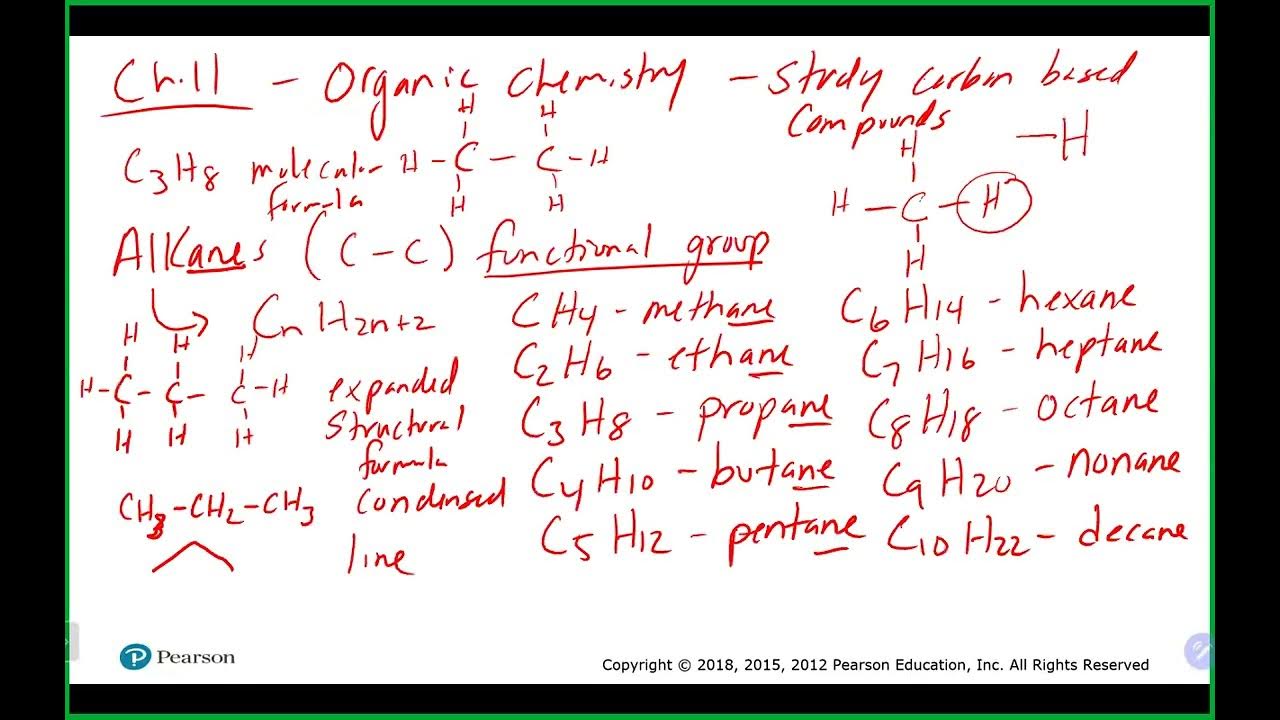 Ch.11 - Organic Chemistry - Study carbon based
compounds
H H
C3H8 molecular H-C-C-H
formula H H
H
H-C-H
H
-H
Alkanes (C-C) functional group
CnH2n+2
H H H
H-C-C-C-H expanded
H H H structural
formula
CH3-CH2-CH3 condensed
line
CH4 - methane
C2H6 - ethane
C3H8 - propane
C4H10 - butane
C5H12 - pentane
C6H14 - hexane
C7H16 - heptane
C8H18 - octane
C9H20 - nonane
C10H22 - decane
Pearson
Copyright © 2018, 2015, 2012 Pearson Education, Inc. All Rights Reserved